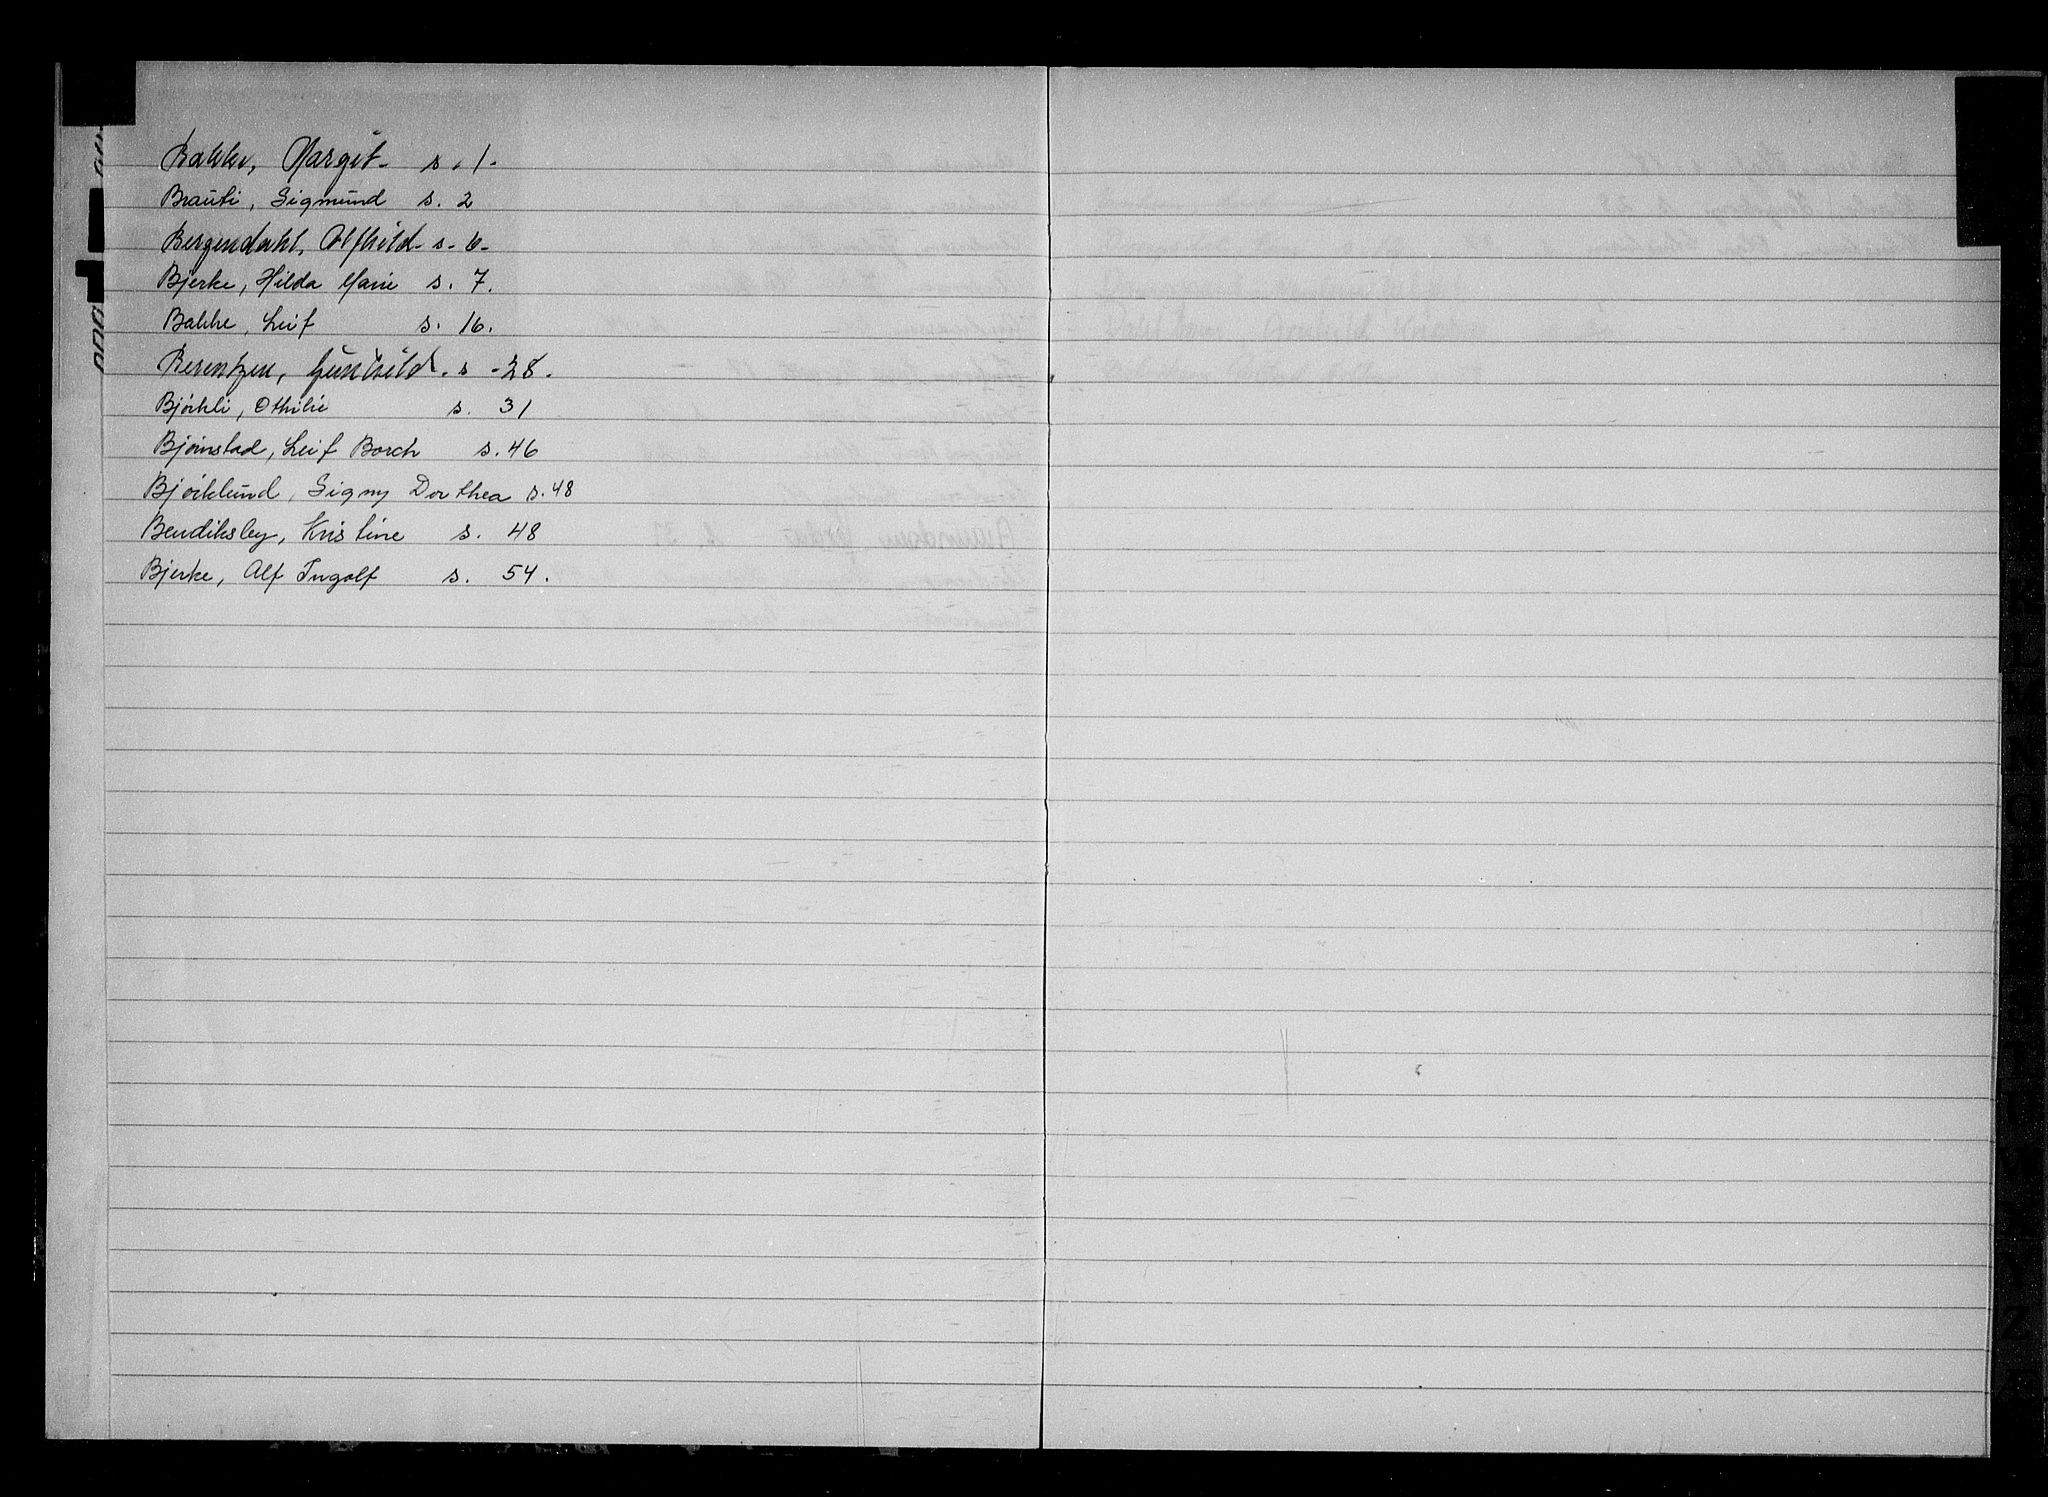 Bakke, Margit - s. 1 -
Brauti, Sigmund s. 2
Bergendahl, Alfhild - s - 6 -
Bjerke, Hilda Marie s. 7.
Bakke, Leif s. 16.
Berentzen, Gunhild. s - 28.
Bjørkli, Othilie s. 31
Bjørnstad, Leif Borch s. 46
Bjørklund, Signy Dorthea s. 48
Bendiksby, Kristine s. 48
Bjerke, Alf Ingolf s. 54.